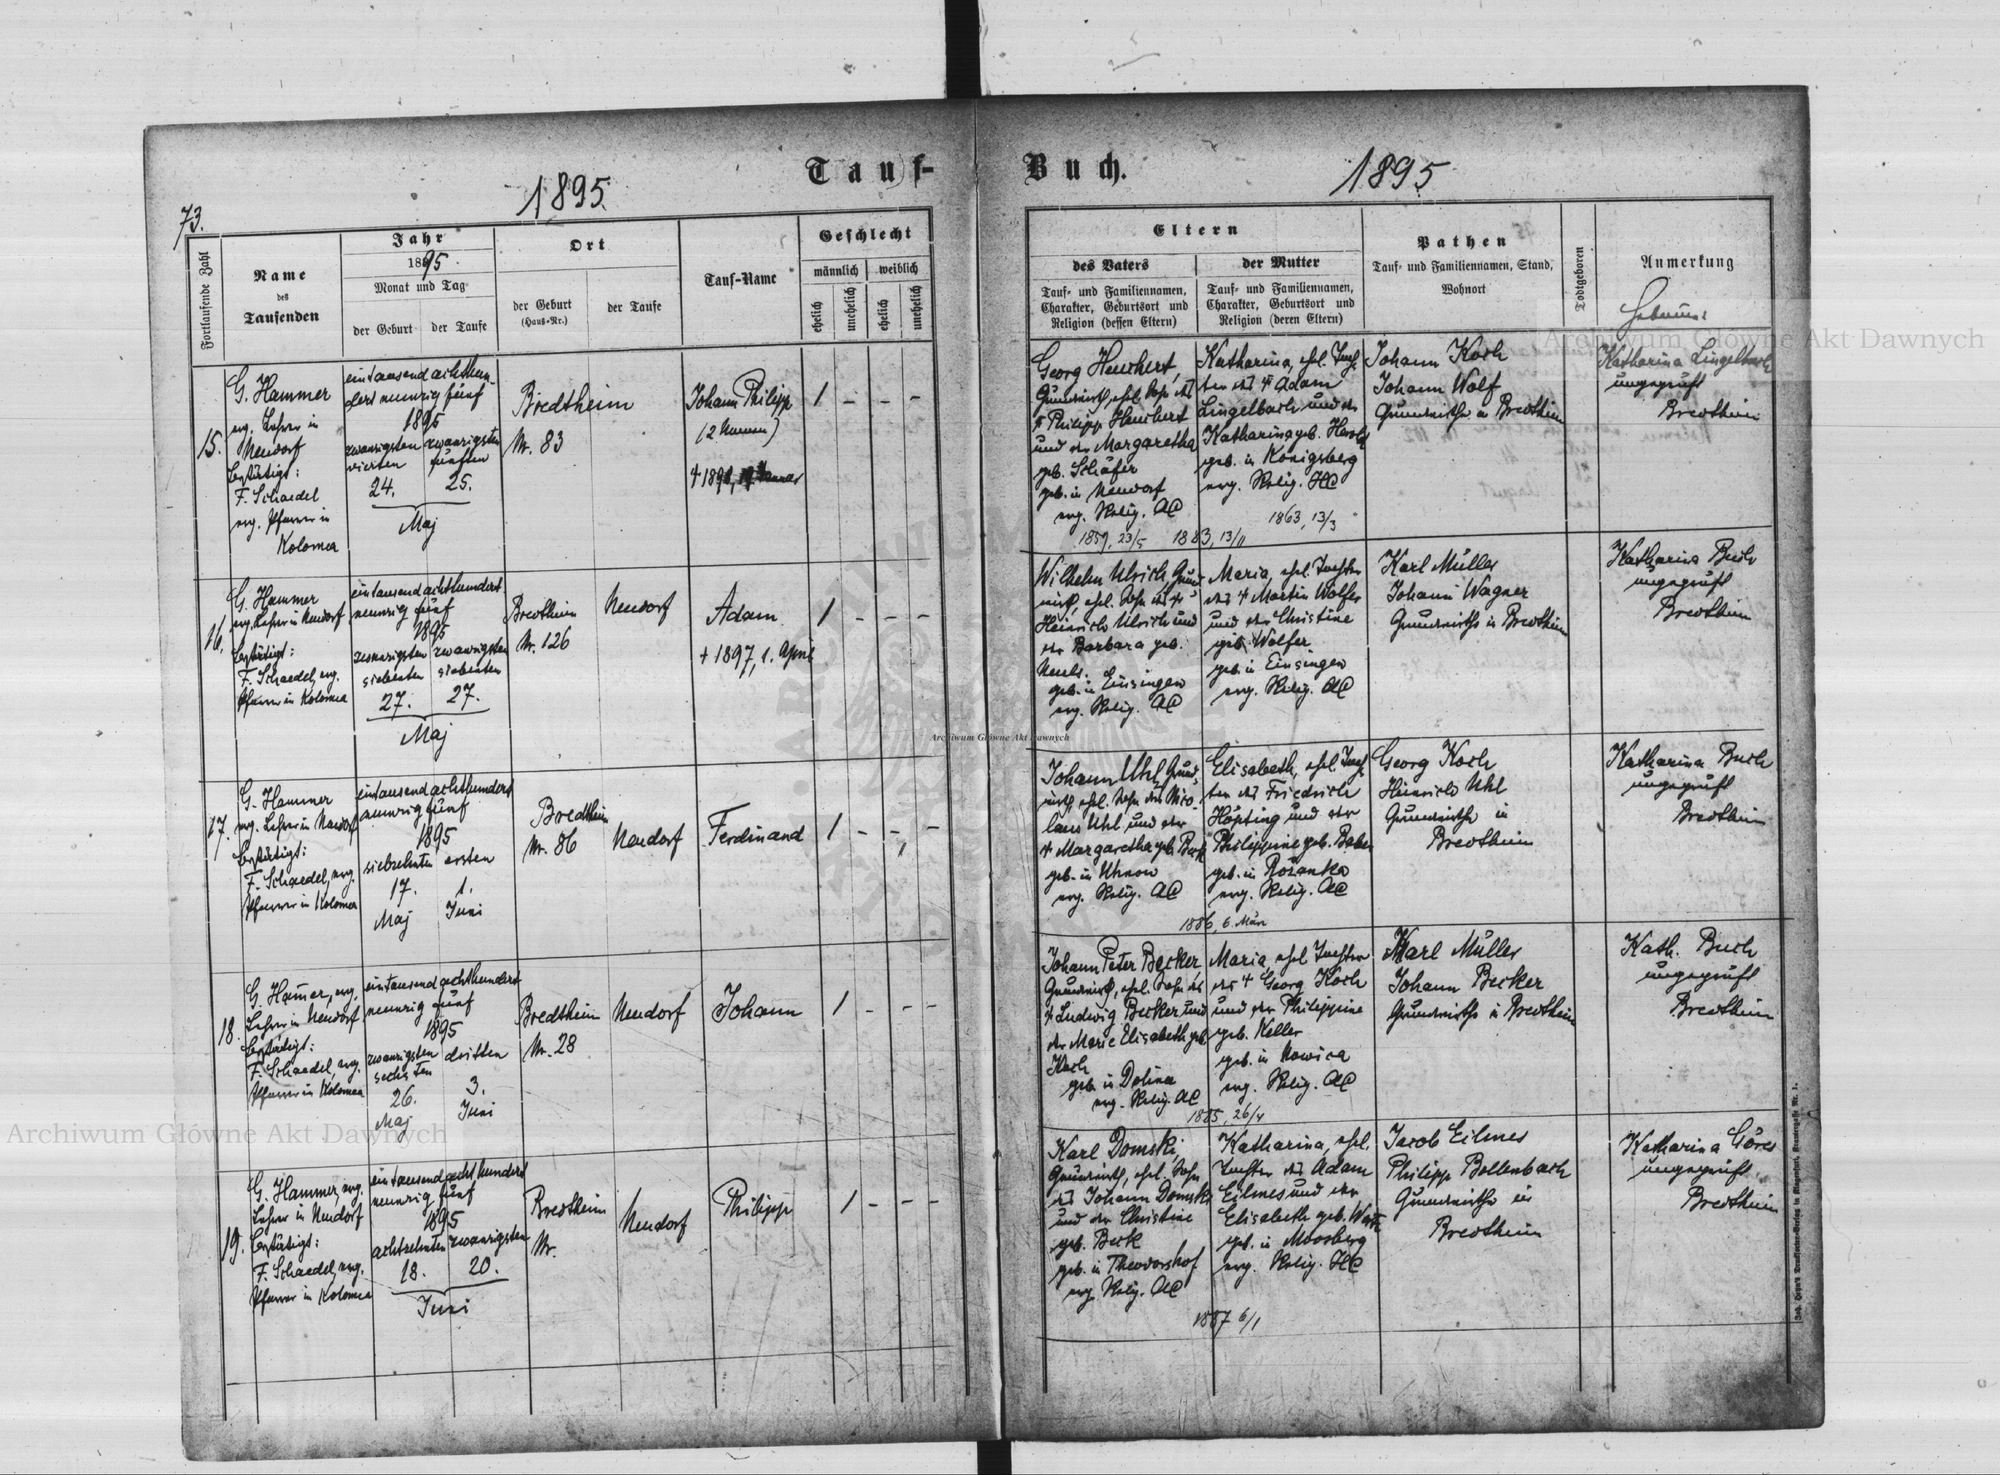 Tauf-
Buch.
1895
1895
73.
Fortlaufende Zahl
Name
des
Taufenden
Jahr
1895.
Monat und Tag
der Geburt
der Taufe
Ort
der Geburt
(Haus-Nr.)
der Taufe
Tauf-Name
Geschlecht
männlich
weiblich
ehelich
unehelich
ehelich
unehelich
Eltern
des Vaters
Tauf- und Familiennamen,
Charakter, Geburtsort und
Religion (dessen Eltern)
der Mutter
Tauf- und Familiennamen,
Charakter, Geburtsort und
Religion (deren Eltern)
Pathen
Tauf- und Familiennamen, Stand,
Wohnort
Todtgeboren
Anmerkung
15.
G. Hammer
evg. Lehrer in
Neudorf
bestätigt:
F. Schaedel
evg. Pfarrer in
Kolomea
eintausend achthun-
dert neunzig fünf
1895
zwanzigsten zwanzigsten
vierten fünften
24. 25.
Maj
Bredtheim
Nr. 83
Johann Philipp
(2 Namen)
1 – – –
Georg Heuchert,
Grundwirth, ehel. Sohn des
† Philipp Heuchert
und der Margaretha
geb. Schäfer
geb. in Neudorf
evg. Relig. AC
1859, 23/5
1883, 13/11
Katharina, ehel. Toch-
ter des † Adam
Lingelbach und der
Katharina geb. Herold
geb. in Königsberg
evg. Relig. HC
1863, 13/3
Johann Koch
Johann Wolf
Grundwirthe in Bredtheim
Katharina Lingelbach
ungeprüft
Bredtheim
16.
G. Hammer
evg. Lehrer in Neudorf
bestätigt:
F. Schaedel, evg.
Pfarrer in Kolomea
eintausend achthundert
neunzig fünf
1895
zwanzigsten zwanzigsten
siebenten siebenten
27. 27.
Maj
Bredtheim
Nr. 126
Neudorf
Adam
† 1897, 1. April
1 – – –
Wilhelm Ulrich, Grund-
wirth, ehel. Sohn des †
Heinrich Ulrich und
der Barbara geb.
geb. in Einsingen
evg. Relig. AC
Maria, ehel. Tochter
des † Martin Wolfer
und der Christine
geb. Wolfer
geb. in Einsingen
evg. Relig. AC
Karl Müller
Johann Wagner
Grundwirthe in Bredtheim
Katharina Buch
ungeprüft
Bredtheim
17.
G. Hammer
evg. Lehrer in Neudorf
bestätigt:
F. Schaedel, evg.
Pfarrer in Kolomea
eintausend achthundert
neunzig fünf
1895
siebzehnten ersten
17. 1.
Maj Juni
Bredtheim
Nr. 86
Neudorf
Ferdinand
1 – – –
Johann Uhl, Grund-
wirth, ehel. Sohn des Nico-
laus Uhl und der
† Margaretha geb.
geb. in Uhnow
evg. Relig. AC
1886, 6. März
Elisabeth, ehel. Toch-
ter des Friedrich
Höpting und der
Philippine geb.
geb. in Rożanka
evg. Relig. AC
Georg Koch
Heinrich Uhl
Grundwirthe in
Bredtheim
Katharina Buch
ungeprüft
Bredtheim
18.
G. Hamer, evg.
Lehrer in Neudorf
bestätigt:
F. Schaedel, evg.
Pfarrer in Kolomea
eintausend achthundert
neunzig fünf
1895
zwanzigsten dritten
sechsten
26. 3.
Maj Juni
Bredtheim
Nr. 28
Neudorf
Johann
1 – – –
Johann Peter Becker,
Grundwirth, ehel. Sohn des
† Ludwig Becker und
der Marie Elisabeth geb.
Koch
geb. in Dolina
evg. Relig. AC
1885, 26/4
Maria, ehel. Tochter
des † Georg Koch
und der Philippine
geb. Keller
geb. in Nowica
evg. Relig. AC
Karl Müller
Johann Becker
Grundwirthe in Bredtheim
Kath. Buch
ungeprüft
Bredtheim
19.
G. Hammer, evg.
Lehrer in Neudorf
bestätigt:
F. Schaedel, evg.
Pfarrer in Kolomea
eintausend achthundert
neunzig fünf
1895
achtzehnten zwanzigsten
18. 20.
Juni
Bredtheim
Nr.
Neudorf
Philipp
1 – – –
Karl Domski,
Grundwirth, ehel. Sohn
des Johann Domski
und der Christine
geb. Beck
geb. in Theodorshof
evg. Relig. AC
1887 6/1
Katharina, ehel.
Tochter des Adam
Eilmes und der
Elisabeth geb.
geb. in Moosberg
evg. Relig. HC
Jacob Eilmes
Philipp Bollenbach
Grundwirthe in
Bredtheim
Katharina Göres
ungeprüft
Bredtheim
Archiwum Główne Akt Dawnych
Archiwum Główne Akt Dawnych
Archiwum Główne Akt Dawnych